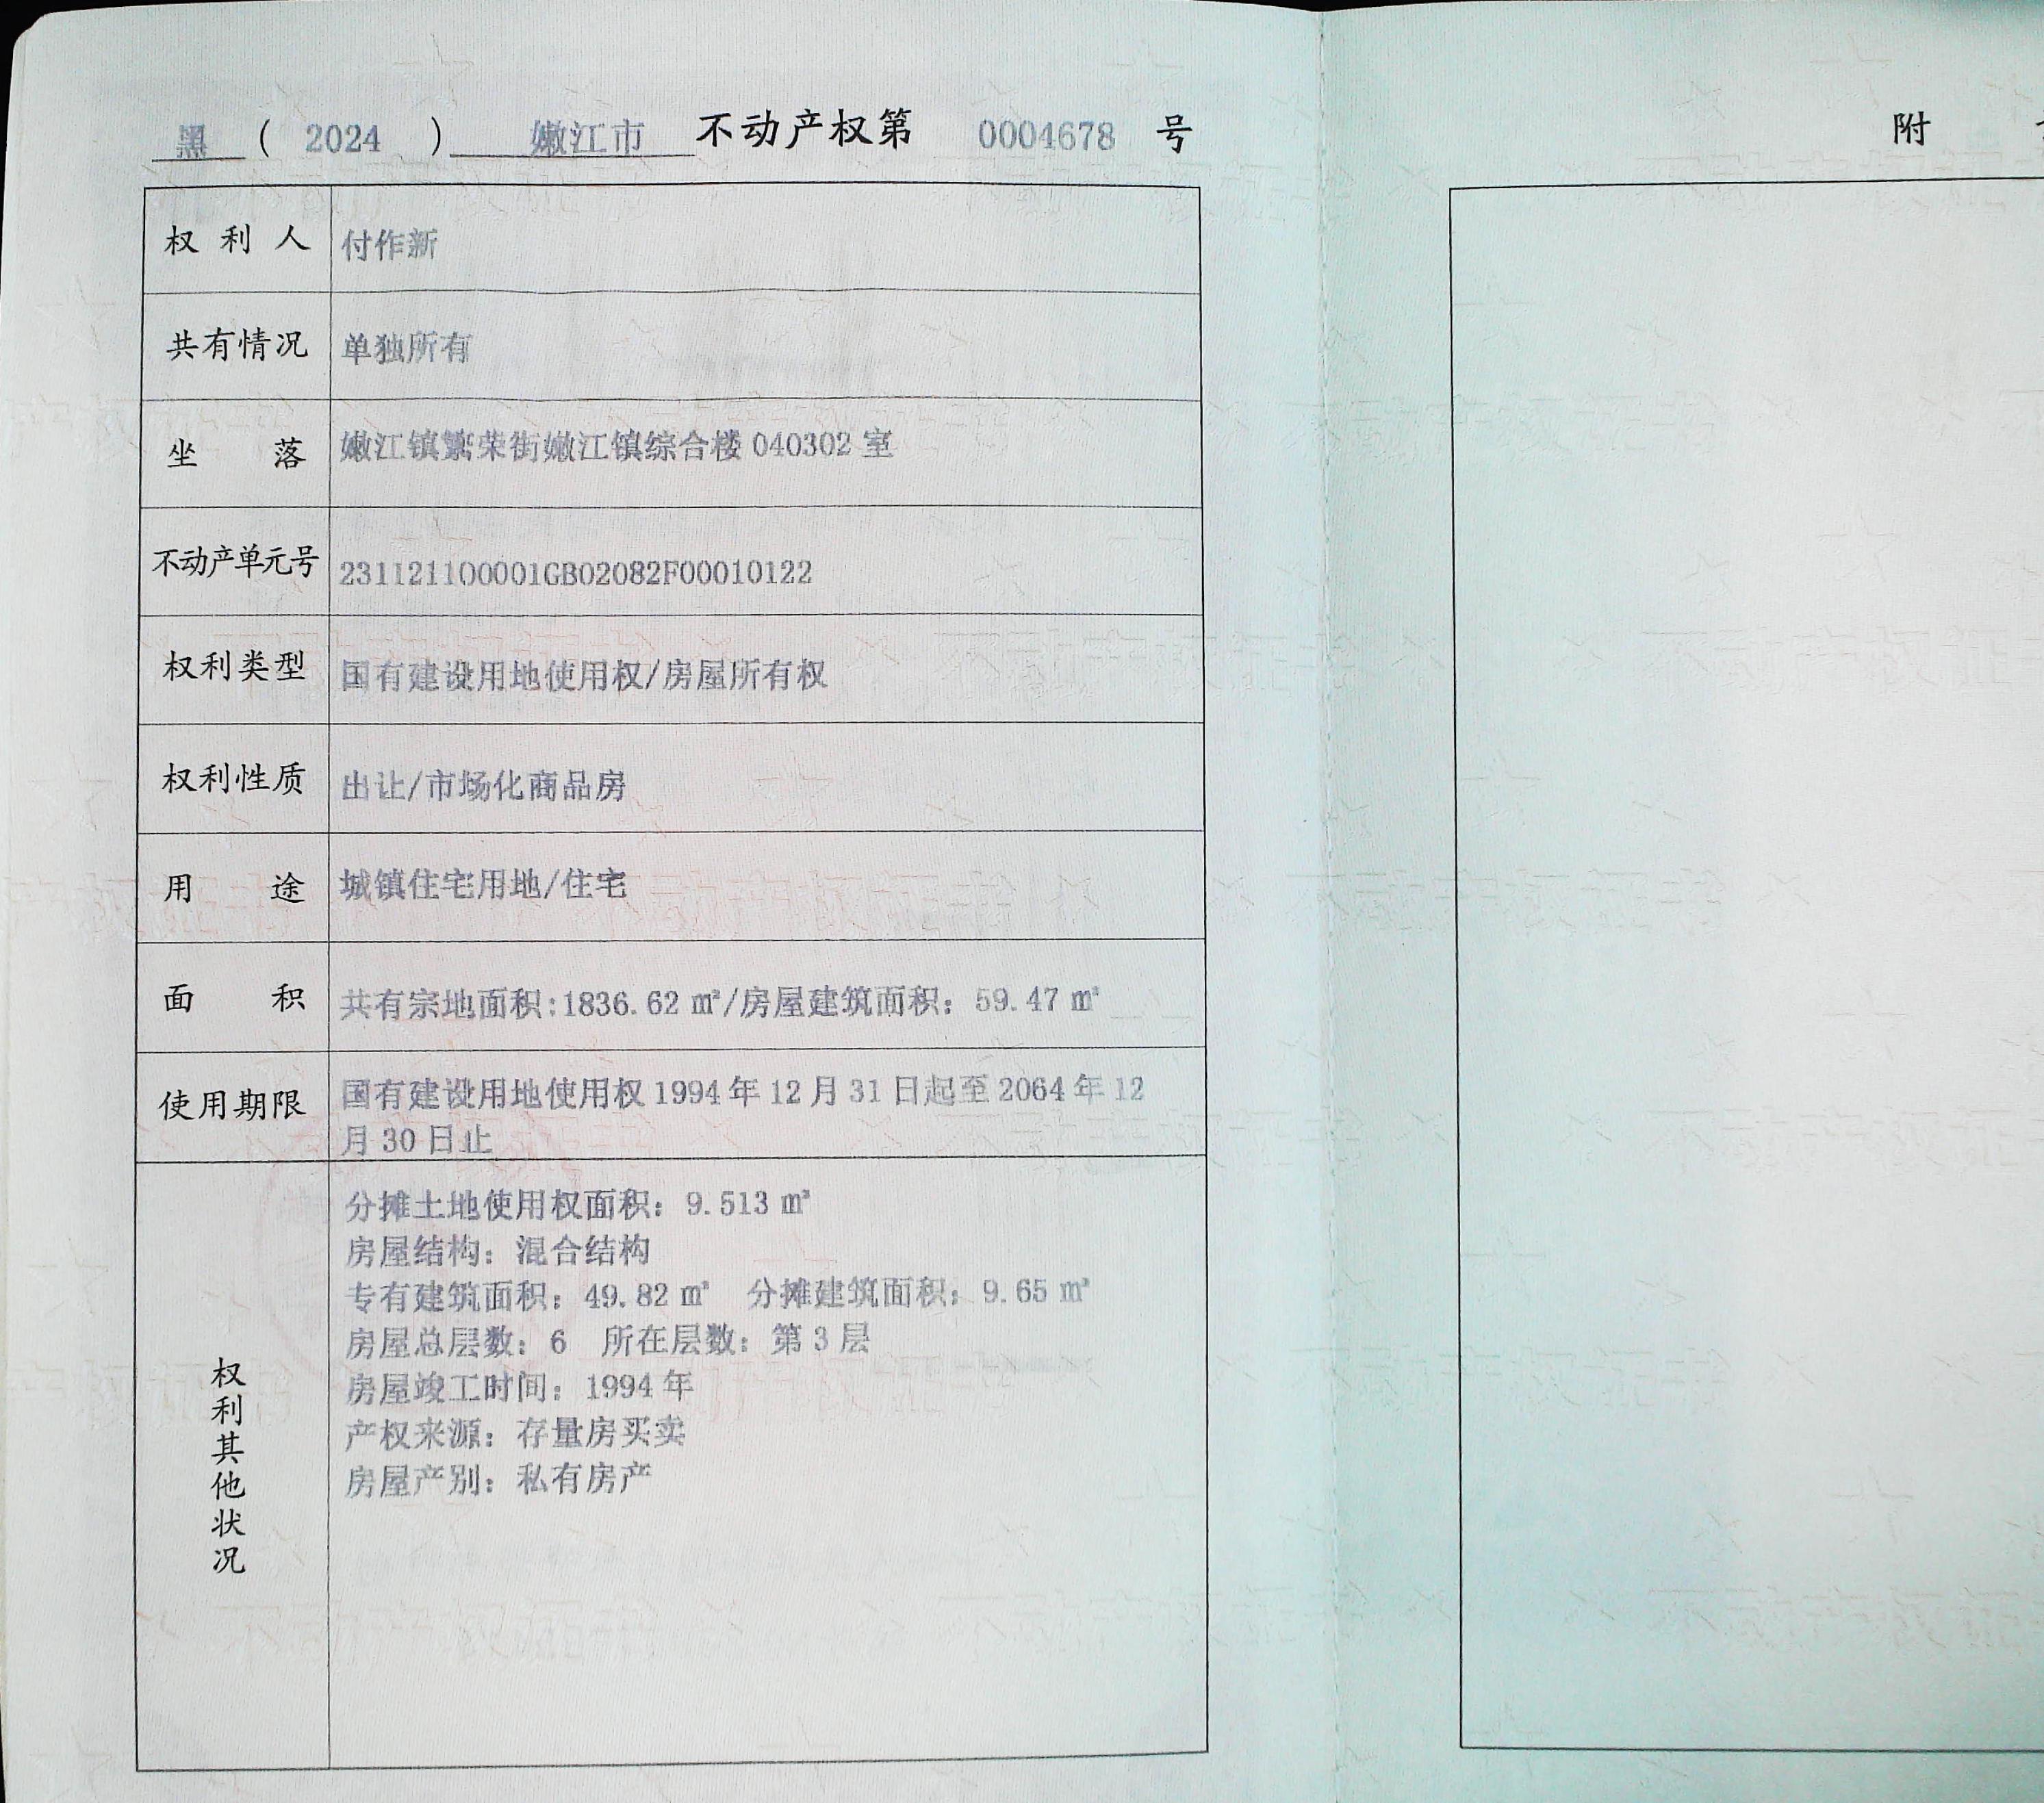 黑 ( 2024 ) 嫩江市 不动产权第 0004678 号
权利人 付作新
共有情况 单独所有
坐落 嫩江镇繁荣街嫩江镇综合楼 040302 室
不动产单元号 231121100001GB02082F00010122
权利类型 国有建设用地使用权/房屋所有权
权利性质 出让/市场化商品房
用途 城镇住宅用地/住宅
面积 共有宗地面积:1836.62 ㎡/房屋建筑面积：59.47 ㎡
使用期限 国有建设用地使用权 1994 年 12 月 31 日起至 2064 年 12
月 30 日止
权利其他状况
分摊土地使用权面积：9.513 ㎡
房屋结构：混合结构
专有建筑面积：49.82 ㎡ 分摊建筑面积：9.65 ㎡
房屋总层数：6 所在层数：第 3 层
房屋竣工时间：1994 年
产权来源：存量房买卖
房屋产别：私有房产
附